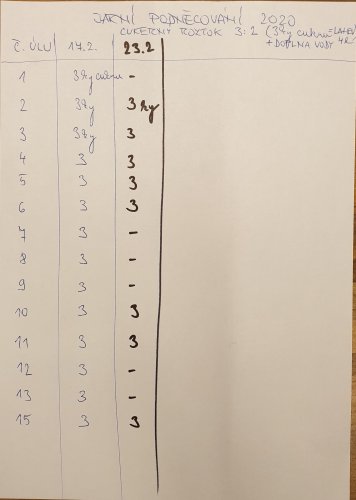 JARNÍ PODNĚCOVÁNÍ 2020
CUKERNÝ ROZTOK 3:2 (3kg cukru
+ DOPLNA VODY 4l
Č. ÚLU 17.2. 23.2
1 3kg cukru -
2 3kg 3kg
3 3kg 3
4 3 3
5 3 3
6 3 3
7 3 -
8 3 -
9 3 -
10 3 3
11 3 3
12 3 -
13 3 -
15 3 3